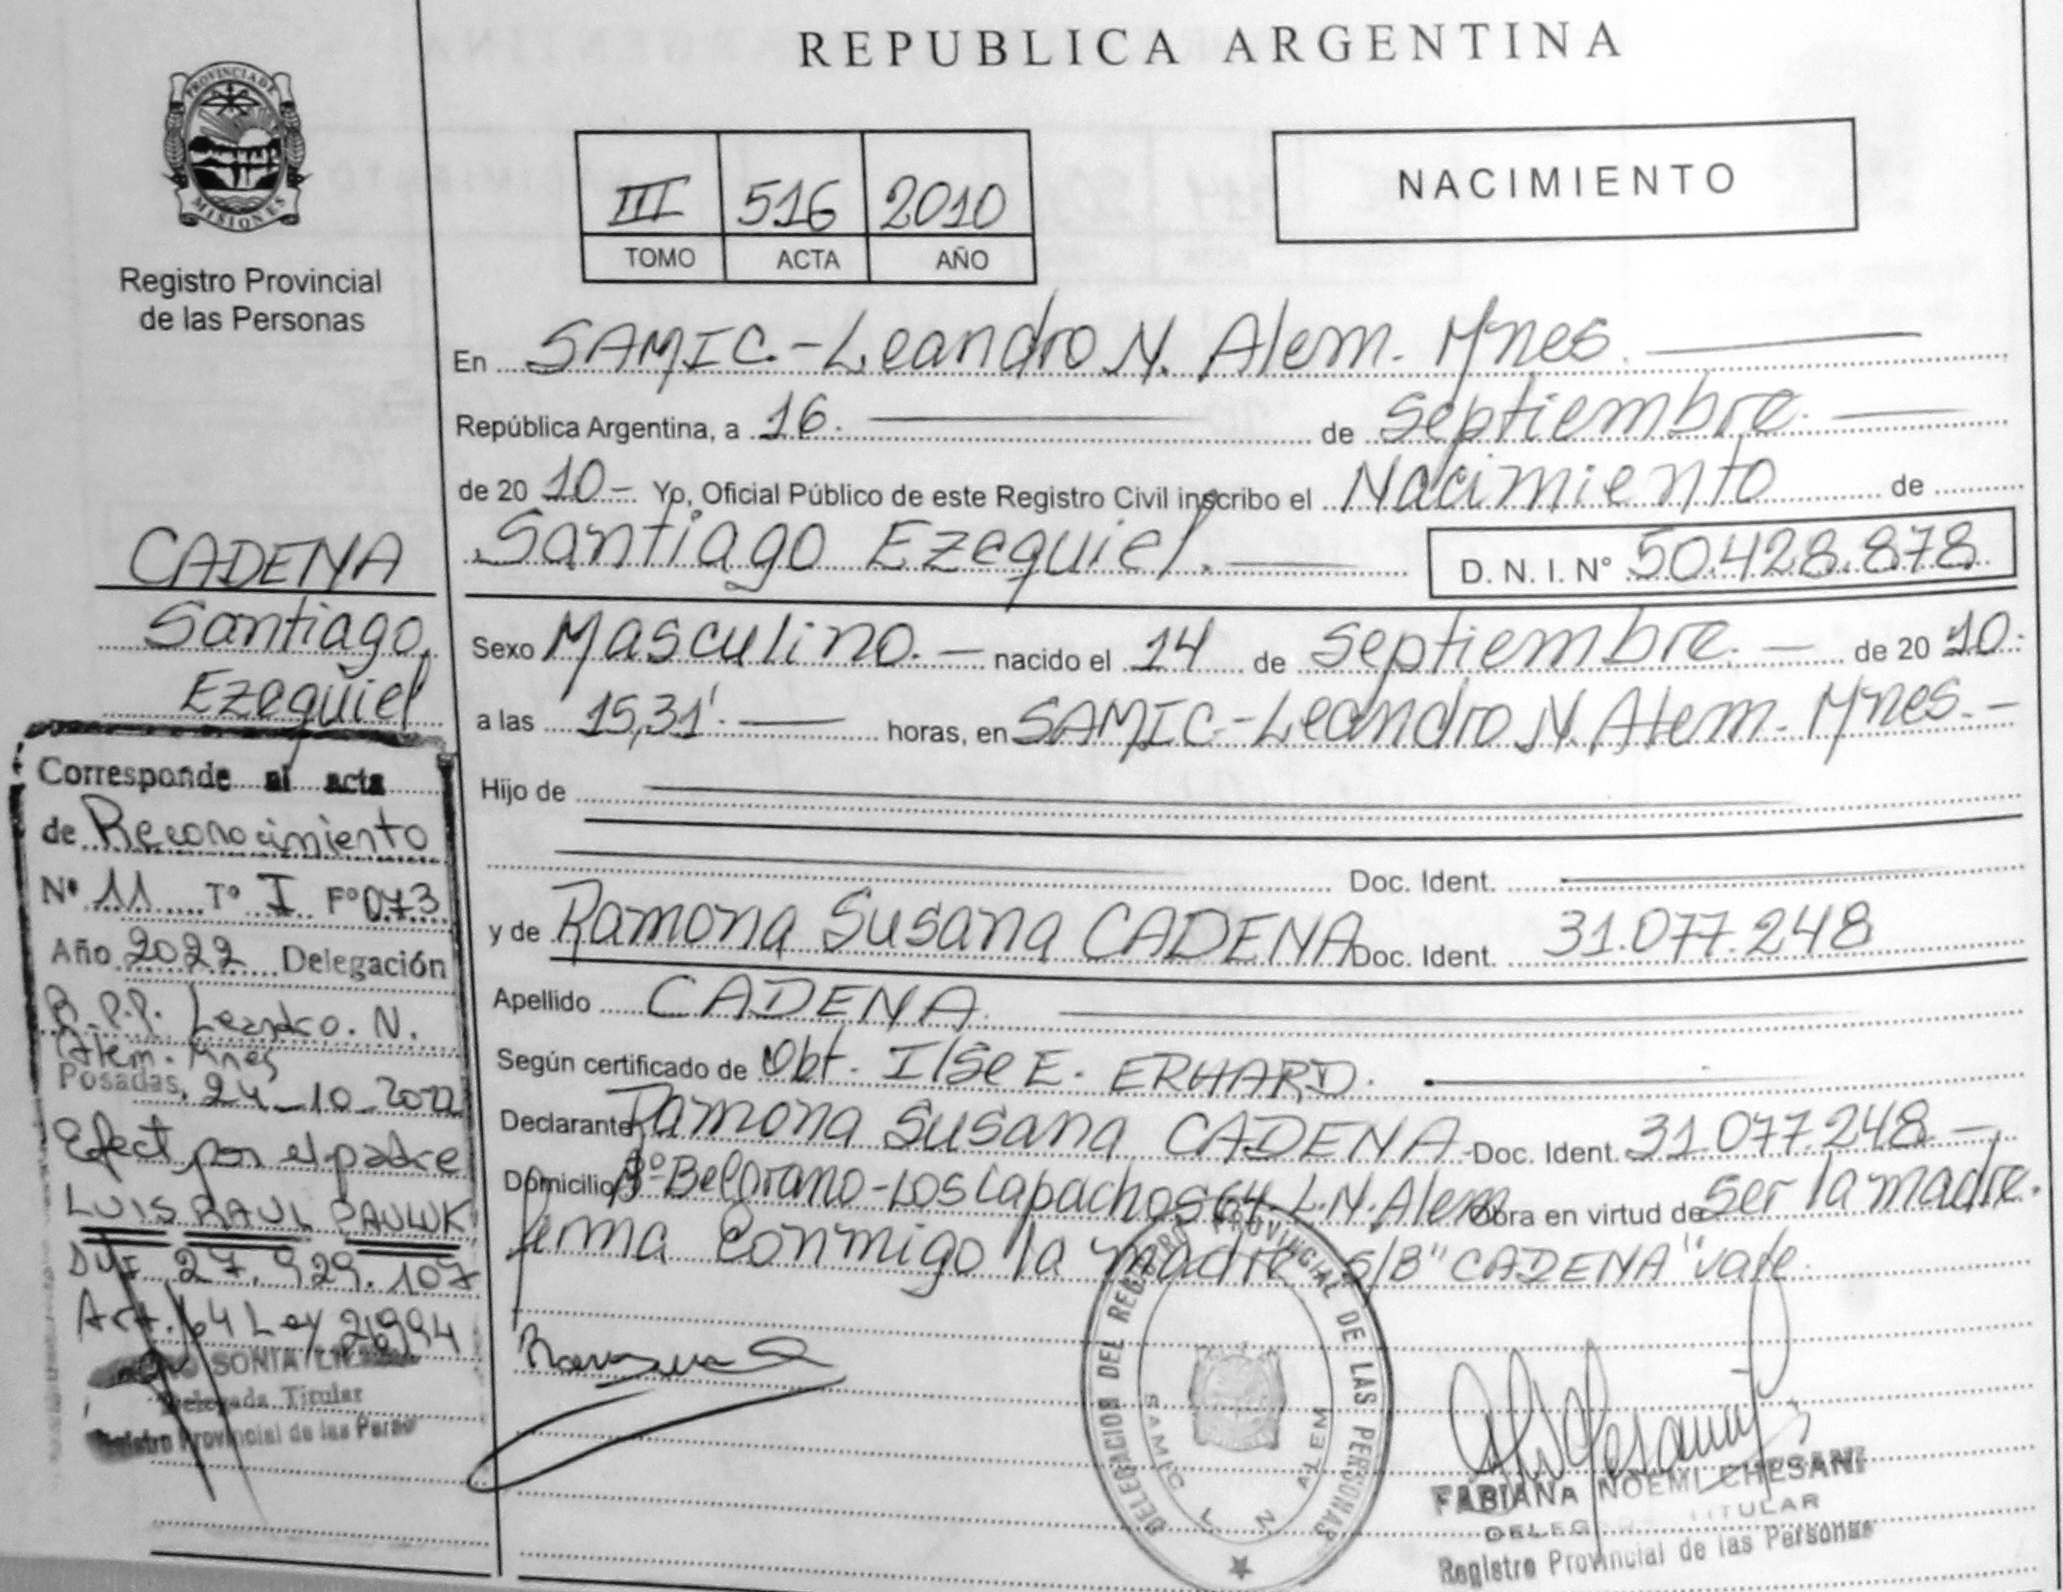 REPUBLICA ARGENTINA
PROVINCIA DE
MISIONES
Registro Provincial
de las Personas
III 516 2010
TOMO ACTA AÑO
NACIMIENTO
En SAMIC.-Leandro N. Alem. Mnes.
República Argentina, a 16. de septiembre.
de 20 10- Yo, Oficial Público de este Registro Civil inscribo el Nacimiento de
Santiago Ezequiel. D. N. I. Nº 50.428.878
Sexo Masculino. - nacido el 14 de septiembre. - de 20 10.
a las 15,31'. horas, en SAMIC-Leandro N. Alem. Mnes. -
Hijo de
Doc. Ident.
y de Ramona Susana CADENA Doc. Ident. 31.077.248
Apellido CADENA.
Según certificado de Obt. Ilse E. ERHARD.
Declarante Ramona Susana CADENA - Doc. Ident. 31.077.248 -
Domicilio Bº Belgrano-Los Lapachos 64. L.N. Alem Obra en virtud de ser la madre.
firma conmigo la madre. S/B "CADENA" vale.
CADENA
Santiago
Ezequiel
Corresponde al acta
de Reconocimiento
Nº 11 Tº I Fº 073
Año 2022 Delegación
R.P.P. Leandro. N.
Alem. Mnes
Posadas, 24-10-2022
Efect por el padre
LUIS RAUL PAULUK
DNI 27.929.107
Art. 64 Ley 26994
SONIA
Delegada Titular
Registro Provincial de las Perso
DELEGACION DEL REGISTRO PROVINCIAL DE LAS PERSONAS
SAMIC L N ALEM
FABIANA NOEMI CHESANI
DELEG TITULAR
Registro Provincial de las Personas